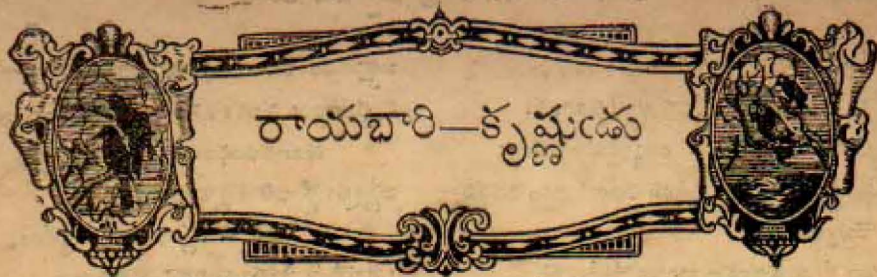 రాయభారి—కృష్ణుఁడు